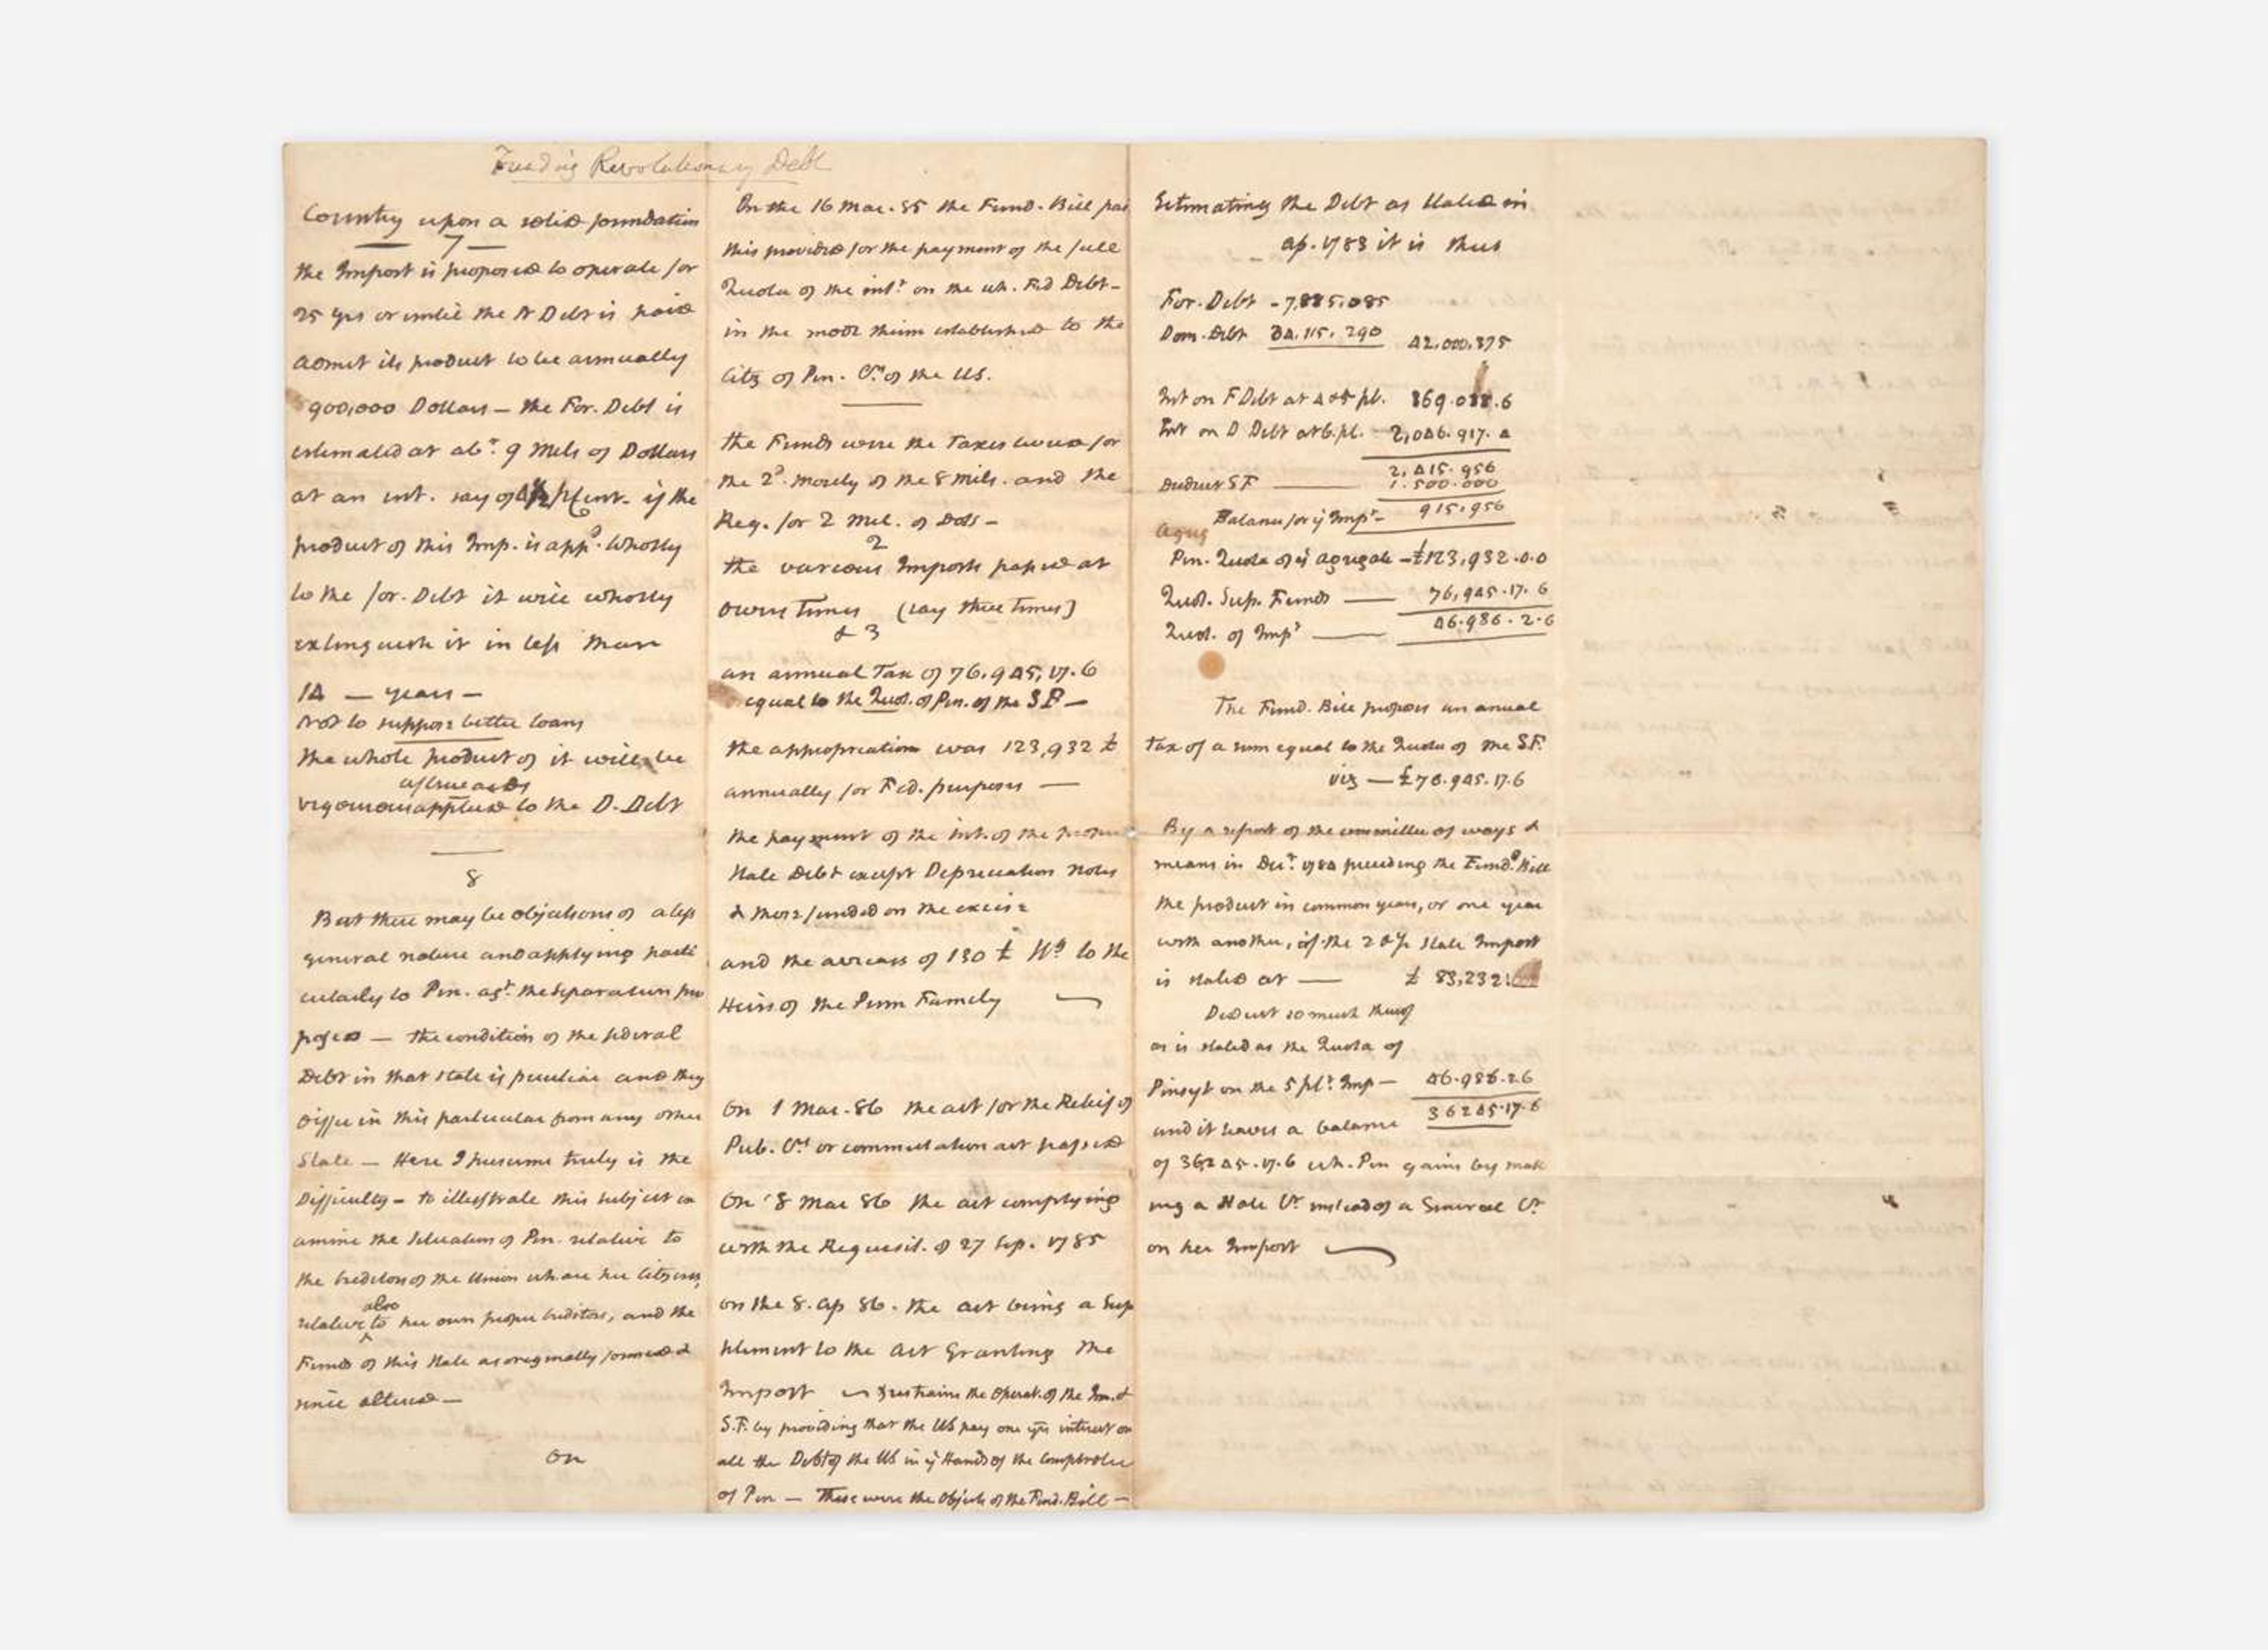 Funding Revolutionary Debt
Country upon a solid foundation
7
the Impost is proposed to operate for
25 yrs or until the N Debt is paid
admit its product to be annually
900,000 Dollars — the For. Debt is
estimated at abt. 9 Mils of Dollars
at an int. say of 4½ p Cent. if the
product of this Imp. is appd. wholly
to the for. Debt it will wholly
extinguish it in less than
14 — years —
Not to suppose better loans
the whole product of it will be
afterwards
vigorously applied to the D. Debt
8
But there may be objections of a less
general nature and applying parti
cularly to Pen. agt. the separation pro
posed — the condition of the federal
Debt in that state is peculiar and they
differ in this particular from any other
State — Here I presume truly is the
Difficulty — to illustrate this subject ex
amine the situation of Pen. relative to
the creditors of the Union who are her Citizens,
also
relative to her own proper creditors, and the
Funds of this State as originally formed &
since altered —
On
On the 16 Mar. 85 the Fund. Bill pas
this provided for the payment of the full
Quota of the intt. on the wh. Fed Debt —
in the mode therein established to the
Citz of Pen. Crs. of the US.
the Funds were the Taxes levied for
the 2d. moiety of the 8 mils. and the
Req. for 2 Mil. of Dols —
2
the various Imposts passed at
divers Times (say three times)
& 3
an annual Tax of 76.945,17.6
equal to the Quot. of Pen. of the S F —
the appropriation was 123,932 £
annually for Fed. purposes —
the payment of the int. of the
State Debt except Depreciation notes
& those funded on the excise
and the arrears of 130 £ Std to the
Heirs of the Penn Family
On 1 Mar. 86 the act for the Relief of
Pub. Crs or commutation act passed
On 8 Mar 86 the act complying
with the Requisit. of 27 Sep. 1785
on the 8. Ap 86. the act being a Sup
plement to the Act Granting the
Impost restrains the Operat. of the Im. &
S.F. by providing that the US pay one yrs interest on
all the Debt of the US in ye Hands of the Comptroller
of Pen — These were the Objects of the Fund. Bill —
Estimating the Debt as stated in
Ap. 1783 it is thus
For. Debt - 7,885.085
Dom. Debt 34.115.290 42.000.375
Int on F Debt at 4 & 5 pt. 369.038.6
Int on D Debt at 6. pt. 2,046.917.4
2,415.956
Deduct S F 1.500.000
Balance for ye Impt — 915.956
Agreg
Pen. Quota of ye agregate — £123,932.0.0
Quot. Sup. Funds — 76,945.17.6
Quot. of Impt — 46.986.2.6
The Fund. Bill proposes an anual
Tax of a sum equal to the Quota of the S.F.
viz — £76.945.17.6
By a report of the committee of ways &
means in Decr. 1784 preceding the Fundg. Bill
the product in common years, or one year
with another, of the 2 & ½ State Impost
is stated at — £ 83,232
Deduct so much thereof
as is stated as the Quota of
Pinsyt on the 5 pCt. Imp — 46.986.2.6
36245.17.6
and it leaves a balance
of 36,245.17.6 wh. Pen gains by mak
ing a State Cr. instead of a General Cr.
on her Impost